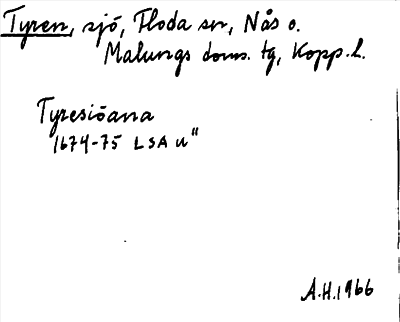 Tyren, sjö, Floda sn, Nås o.
Malungs doms. tg, Kopp. l.
Tyresiöana
1674-75 LSA u"
A.H. 1966